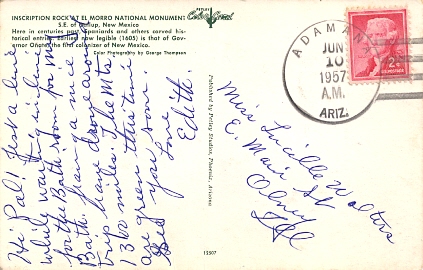 INSCRIPTION ROCK AT EL MORRO NATIONAL MONUMENT
S.E. of Gallup, New Mexico
Here in centuries past Spaniards and others carved historical entries. Earliest now legible (1605) is that of Governor Oñate, the first colonizer of New Mexico.
Color Photography by George Thompson
PETLEY
Hi Pal! Just a line
while waiting in line
for the Bathroom for my
Bath. having a nice
trip have drove around
1300 miles. The Mts.
are green this time.
See you soon.
Love
Edith.
Published by Petley Studios, Phoenix, Arizona
13507
ADAMANA
JUN
10
1957
A.M.
ARIZ.
2¢
Miss Lucille Walters
E. Main St
Olney
Ill